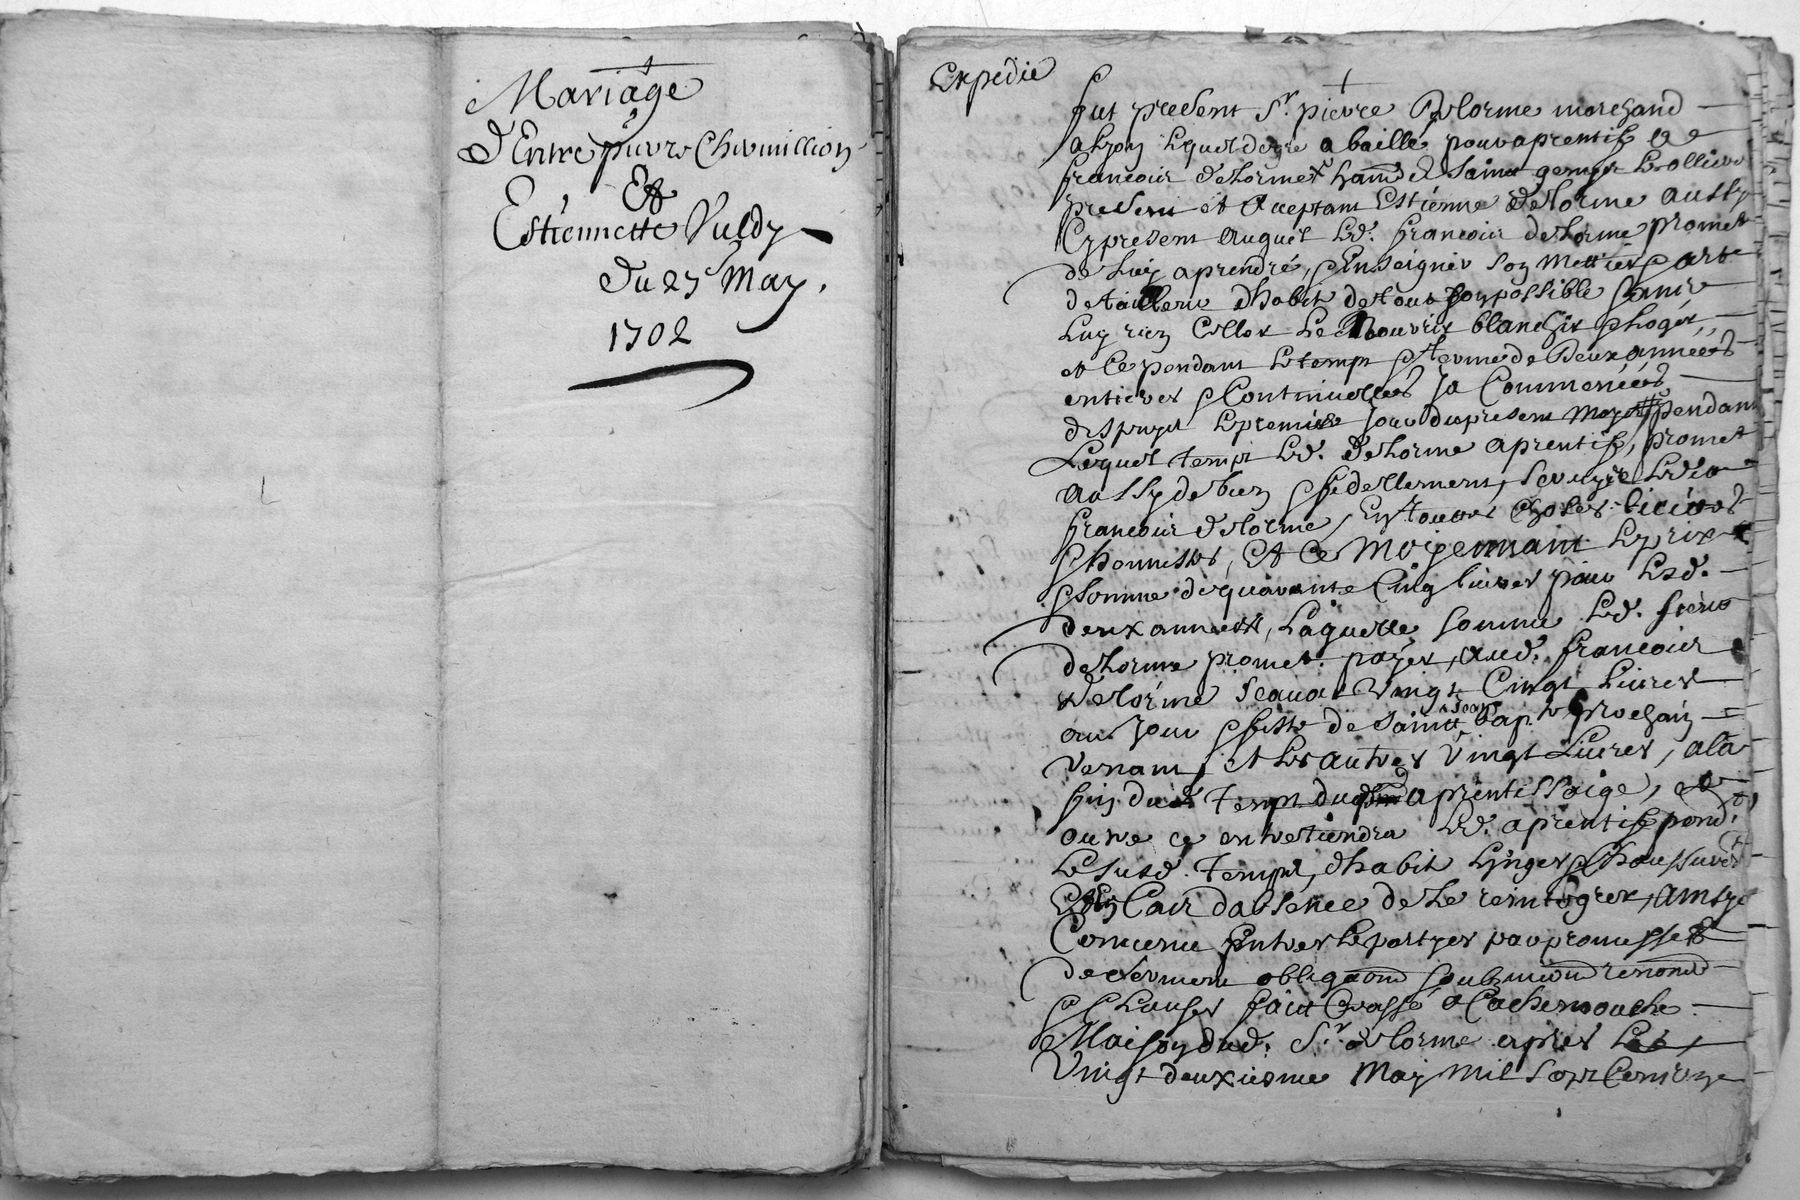 Mariage
d'Entre pierre Chermillion
Et
Estiennette Vuldy
Du 27 May,
1702
Expedie
fut present Sr. pierre Delorme marchand
a Lyon Lequel de gré a baillé pour aprentif a
francois delorme Saint Lollier
present et Aceptant Estienne delorme aussy
Cy present Auquel Led. francois delorme promet
de luy aprendre, & Enseigner son mettier & art
de tailleur dhabit de tout son possible sans
luy rien Celler Le Nourir blanchir & loger,
et Ce pendant Le temps & terme de Deux années
entieres & Continuelles Ja Commencées
despuys Le premier Jour du present Moys pendant
Lequel temps Led. delorme aprentif, promet
Aussy de bien & fidellement, servir Ledit
francois delorme, En toutes Choses licites
& honnestes, Et Ce Moyennant Le prix
& somme de quarante Cinq livres pour Lesd.
deux années, Laquelle somme Led. Sieur
delorme promet payer, aud. francois
delorme scavoir Vingt Cinq Livres
au Jour & feste de Saint Jean Bap.te prochain
Venant, et Les autres Vingt Livres, a la
fin dud temps dud aprentissaige, et
outre ce entretiendra Led. aprentif pendt.
Le susd. temps, dhabit Linges & Chaussures
Et En Cas dabsence de Le reintegrer, Ainsy
Convenu Entre Les partyes par promesses
de serment obligaon soubmion renond
& Clauses fait & passé a Cachemouche
Maison dud. Sr. delorme apres Les
Vingt deuxiesme May Mil Sept Cent